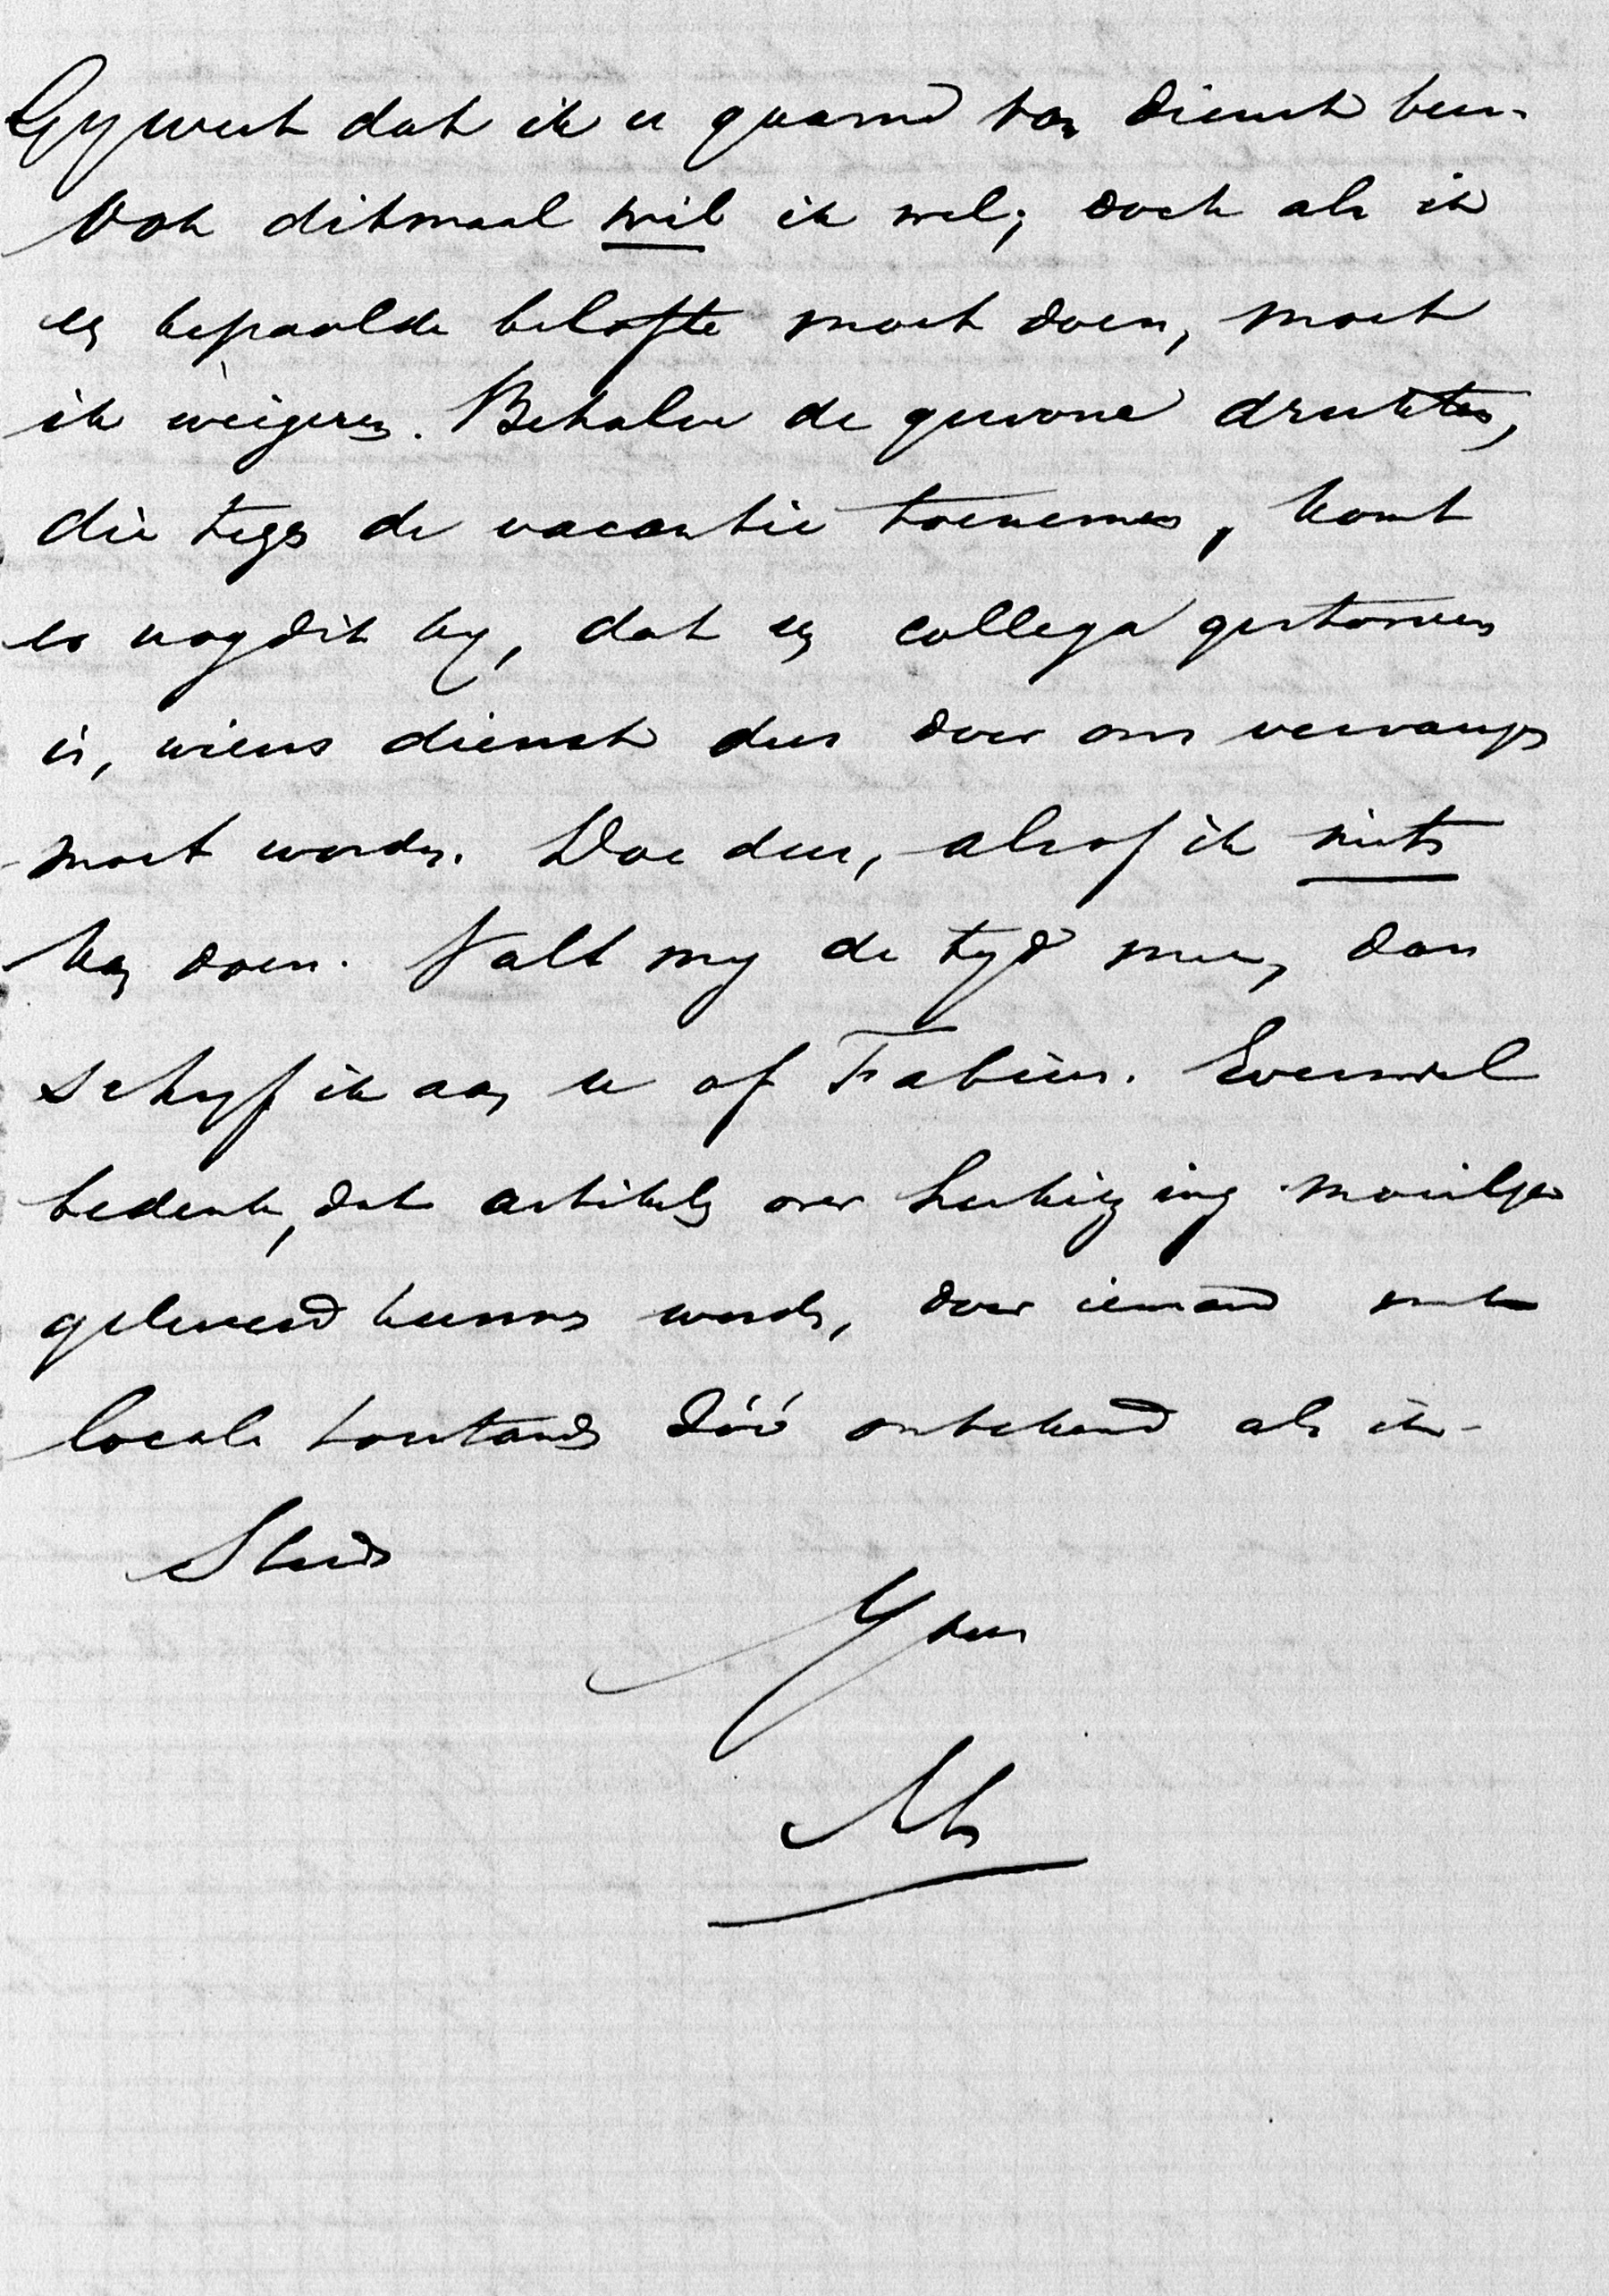 Gy weet dat ik u gaarne van dienst ben.
Ook ditmaal wil ik wel; doch als ik
een bepaalde belofte moet doen, moet
ik weigeren. Behalve de gewone drukten,
die tegen de vacantie toenemen, komt
er nog dit by, dat een collega gestorven
is, wiens dienst dus door ons vervangen
moet worden. Doe dus, alsof ik niets
kan doen. Valt my de tyd mee, dan
schryf ik aan u of Fabius. Evenwel
bedenk, dat artikels over herkiezing moeilyk
geleverd kunnen worden, door iemand met
locale toestanden zóó onbekend als ik.
Steeds